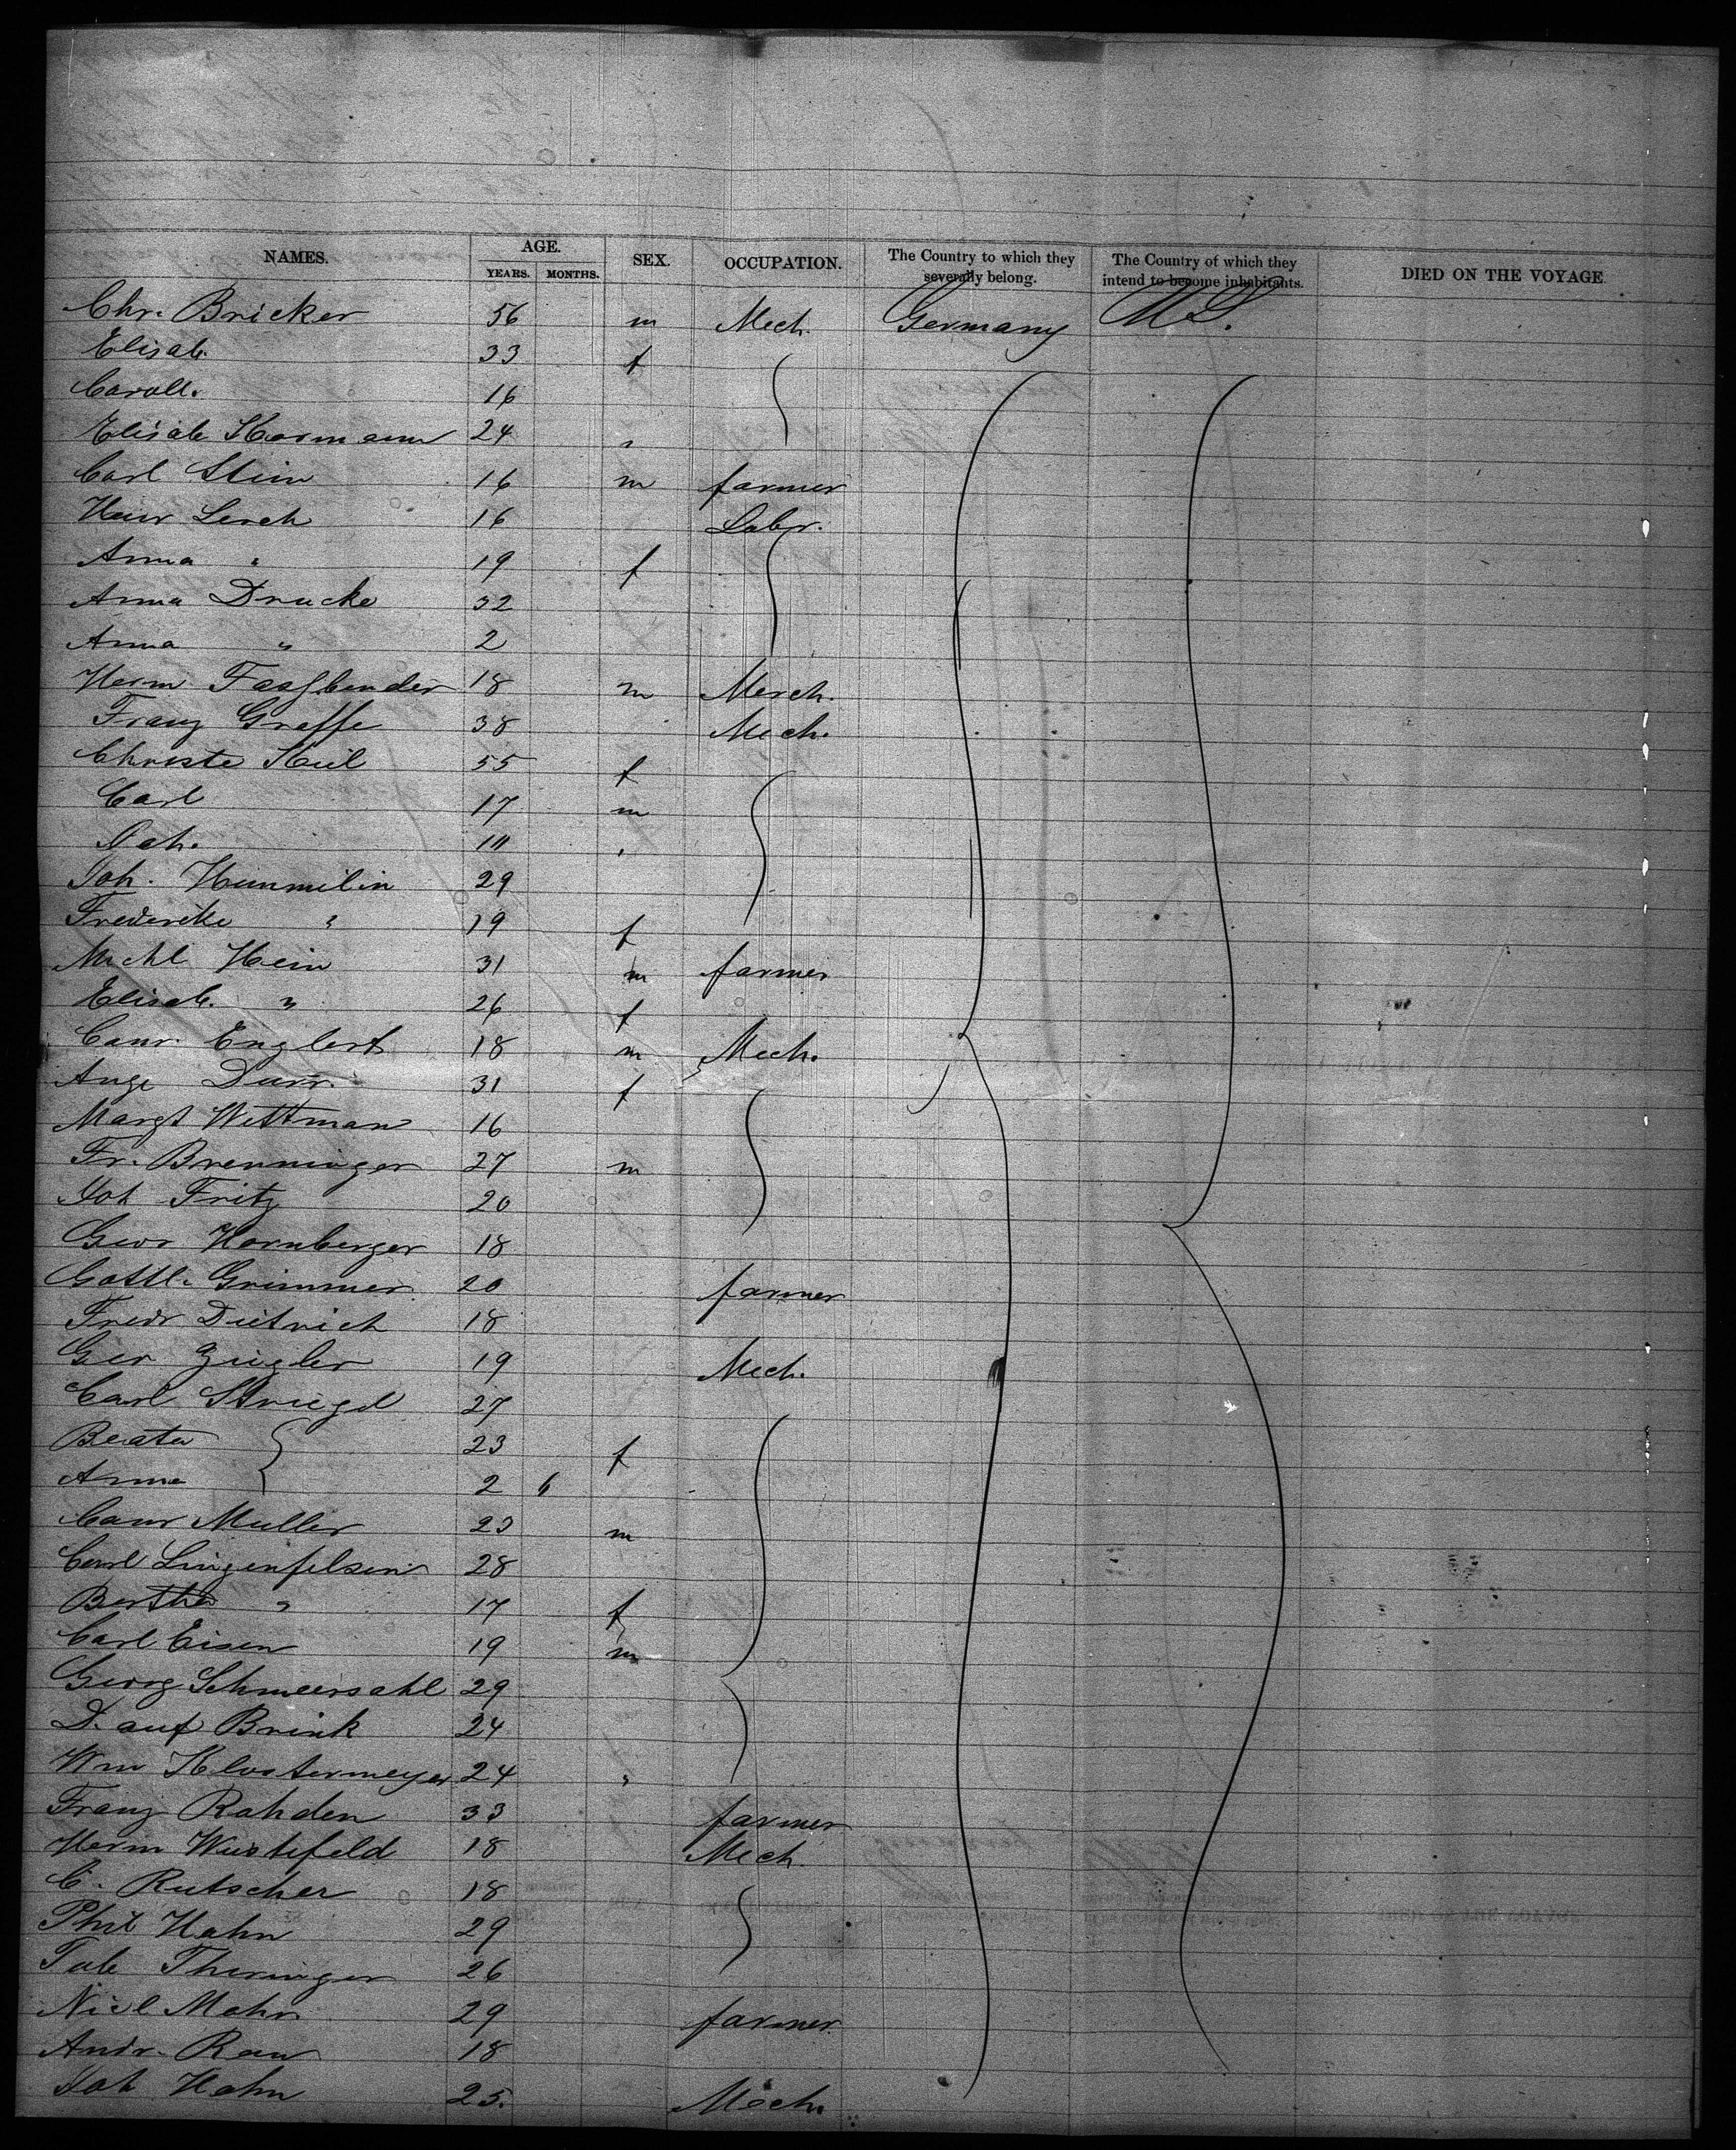 NAMES. AGE. SEX. OCCUPATION. The Country to which they severally belong. The Country of which they intend to become inhabitants. DIED ON THE VOYAGE.
YEARS. MONTHS.
Chr. Bricker 56 m Mech. Germany U S.
Elisab. 33 f
Caroll. 16
Elisab Hormann 24 "
Carl Stein 16 m farmer
Heinr Lerch 16 Labr.
Anna " 19 f
Anna Drucke 32
Anna " 2
Herm Fassbender 18 m Merch.
Franz Graffe 38 Mech.
Christe Keil 55 f
Carl 17 m
Joh. 11 "
Joh. Hummilin 29
Frederike " 19 f
Michl Hein 31 m farmer
Elisab. " 26 f
Conr. Englert 18 m Mech.
Auge Durr. 31 f
Margt Wittman 16
Fr. Brenninger 27 m
Joh Fritz 20
Geor Hornberger 18
Gottl. Grimmer 20 farmer
Fredr Dietrich 18
Geo Ziegler 19 Mech.
Carl Striegel 27
Beata 23 f
Anna 2 6
Conr Muller 23 m
Carl Lingenfelser 28
Bertha " 17 f
Carl Eisen 19 m
Georg Schmeersahl 29
D. auf Brink 24
Wm Klostermeyer 24 "
Franz Rohden 33 farmer
Herm Wustefeld 18 Mech
C. Rutscher 18
Phil Hahn 29
Theringer 26
Nicl Mohr 29 farmer
Andr. Rau 18
Joh Hahn 25. Mech.